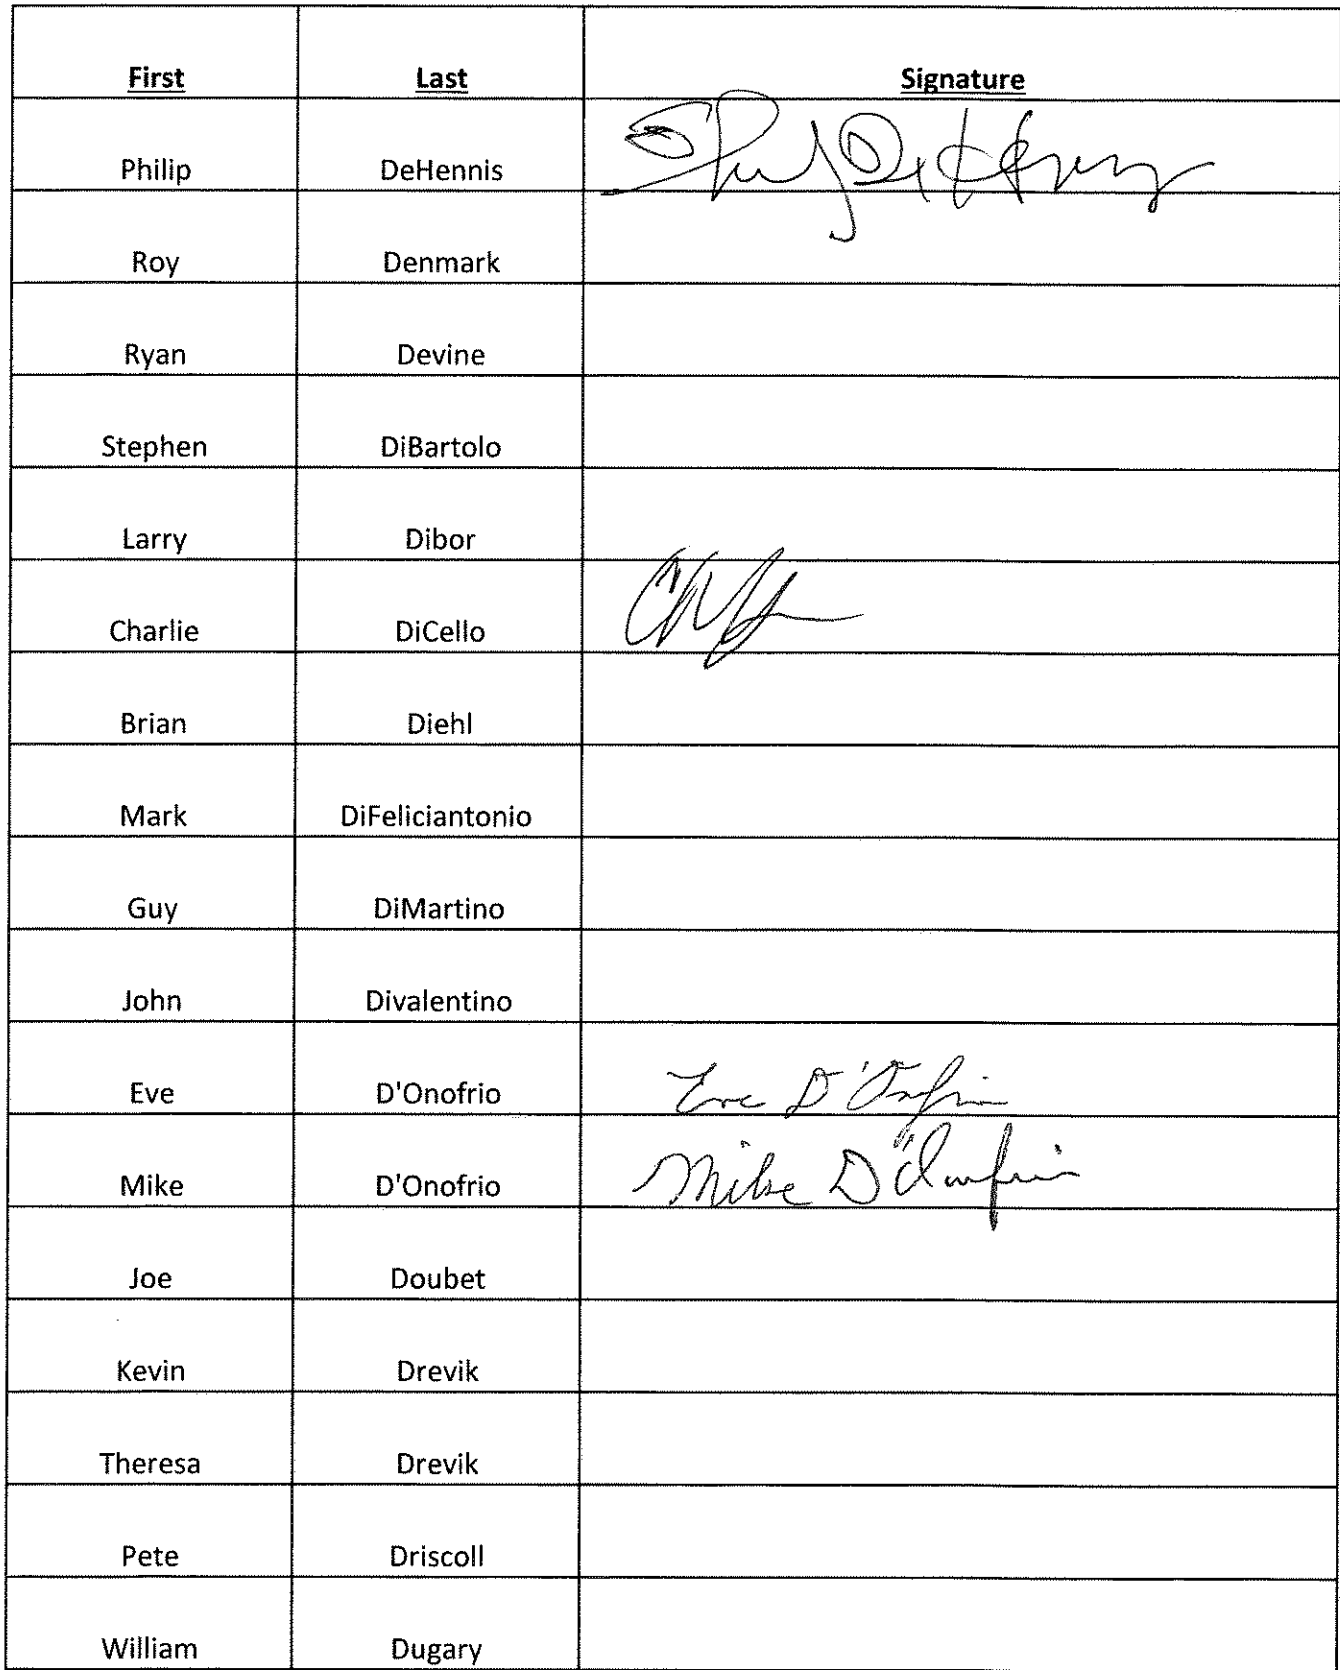 First Last Signature
Philip DeHennis
Roy Denmark
Ryan Devine
Stephen DiBartolo
Larry Dibor
Charlie DiCello
Brian Diehl
Mark DiFeliciantonio
Guy DiMartino
John Divalentino
Eve D'Onofrio Eve D'Onofrio
Mike D'Onofrio Mike D'Onofrio
Joe Doubet
Kevin Drevik
Theresa Drevik
Pete Driscoll
William Dugary